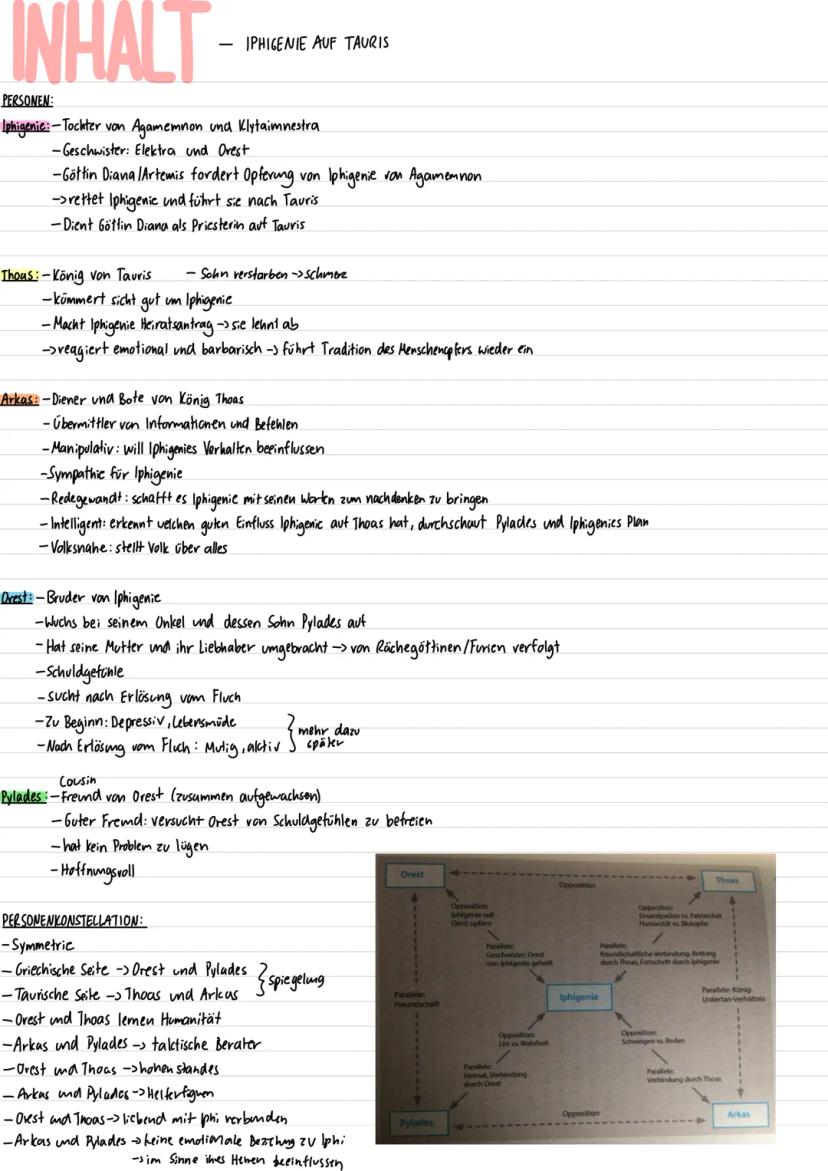 INHALT – IPHIGENIE AUF TAURIS
PERSONEN:
Iphigenie: – Tochter von Agamemnon und Klytaimnestra
– Geschwister: Elektra und Orest
– Göttin Diana/Artemis fordert Opferung von Iphigenie von Agamemnon
-> rettet Iphigenie und führt sie nach Tauris
– Dient Göttin Diana als Priesterin auf Tauris
Thoas: – König von Tauris – Sohn verstarben -> schmerz
– kümmert sicht gut um Iphigenie
– Macht Iphigenie Heiratsantrag -> sie lehnt ab
-> reagiert emotional und barbarisch -> führt Tradition des Menschenopfers wieder ein
Arkas: – Diener und Bote von König Thoas
– Übermittler von Informationen und Befehlen
– Manipulativ: will Iphigenies Verhalten beeinflussen
– Sympathie für Iphigenie
– Redegewandt: schafft es Iphigenie mit seinen Worten zum nachdenken zu bringen
– Intelligent: erkennt welchen guten Einfluss Iphigenie auf Thoas hat, durchschaut Pylades und Iphigenies Plan
– Volksnahe: stellt Volk über alles
Orest: – Bruder von Iphigenie
– Wuchs bei seinem Onkel und dessen Sohn Pylades auf
– Hat seine Mutter und ihr Liebhaber umgebracht -> von Rächegöttinen/Furien verfolgt
– Schuldgefühle
– sucht nach Erlösung vom Fluch
– Zu Beginn: Depressiv, Lebensmüde
– Nach Erlösung vom Fluch: Mutig, aktiv
mehr dazu
später
Cousin
Pylades: – Freund von Orest (zusammen aufgewachsen)
– Guter Freund: versucht Orest von Schuldgefühlen zu befreien
– hat kein Problem zu lügen
– Hoffnungsvoll
PERSONENKONSTELLATION:
– Symmetrie
– Griechische Seite -> Orest und Pylades
– Taurische Seite -> Thoas und Arkas
spiegelung
– Orest und Thoas lernen Humanität
– Arkas und Pylades -> taktische Berater
– Orest und Thoas -> hohen standes
– Arkas und Pylades -> Helferfiguren
– Orest und Thoas -> liebend mit Iphi verbunden
– Arkas und Pylades -> keine emotionale Beziehung zu Iphi
-> im Sinne ihres Herren beeinflussen
Orest
Thoas
Opposition
Opposition:
Iphigenie soll
Orest opfern
Opposition:
Emanzipation vs. Patriarchat
Humanität vs. Blutopfer
Parallele:
Geschwister; Orest
von Iphigenie geheilt
Parallele:
freundschaftliche Verbindung, Rettung
durch Thoas, Fortschritt durch Iphigenie
Parallele:
Freundschaft
Iphigenie
Parallele: König-
Untertan-Verhältnis
Opposition:
List vs. Wahrheit
Opposition:
Schweigen vs. Reden
Parallele:
Heimat, Verbindung
durch Orest
Parallele:
Verbindung durch Thoas
Pylades
Opposition
Arkas